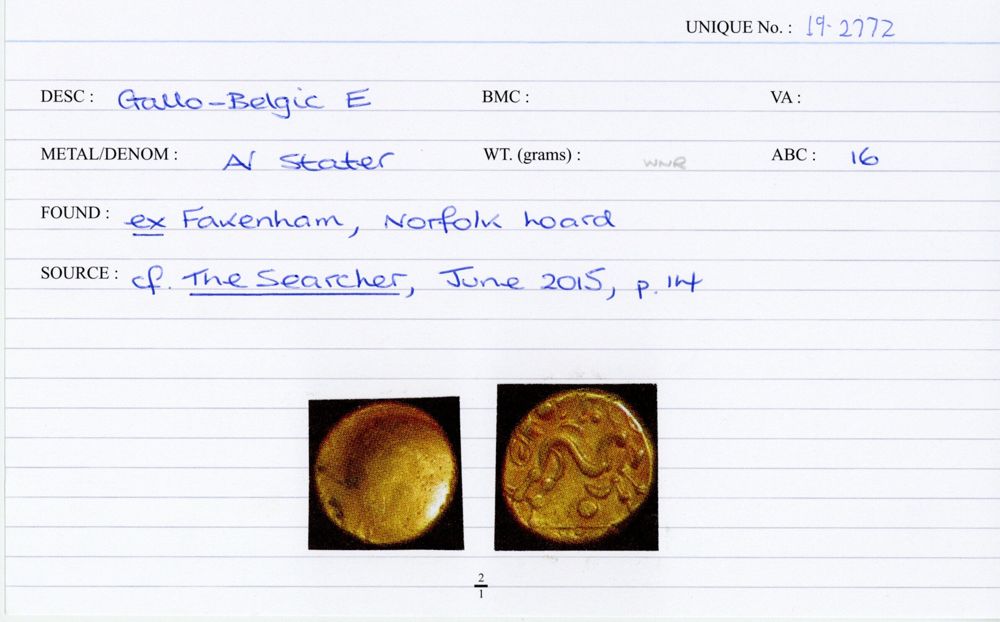 UNIQUE No. : 19-2772
DESC : Gallo-Belgic E BMC : VA :
METAL/DENOM : AV Stater WT. (grams) : WNR ABC : 16
FOUND : ex Fakenham, Norfolk hoard
SOURCE : cf. The Searcher, June 2015, p.14
2
1